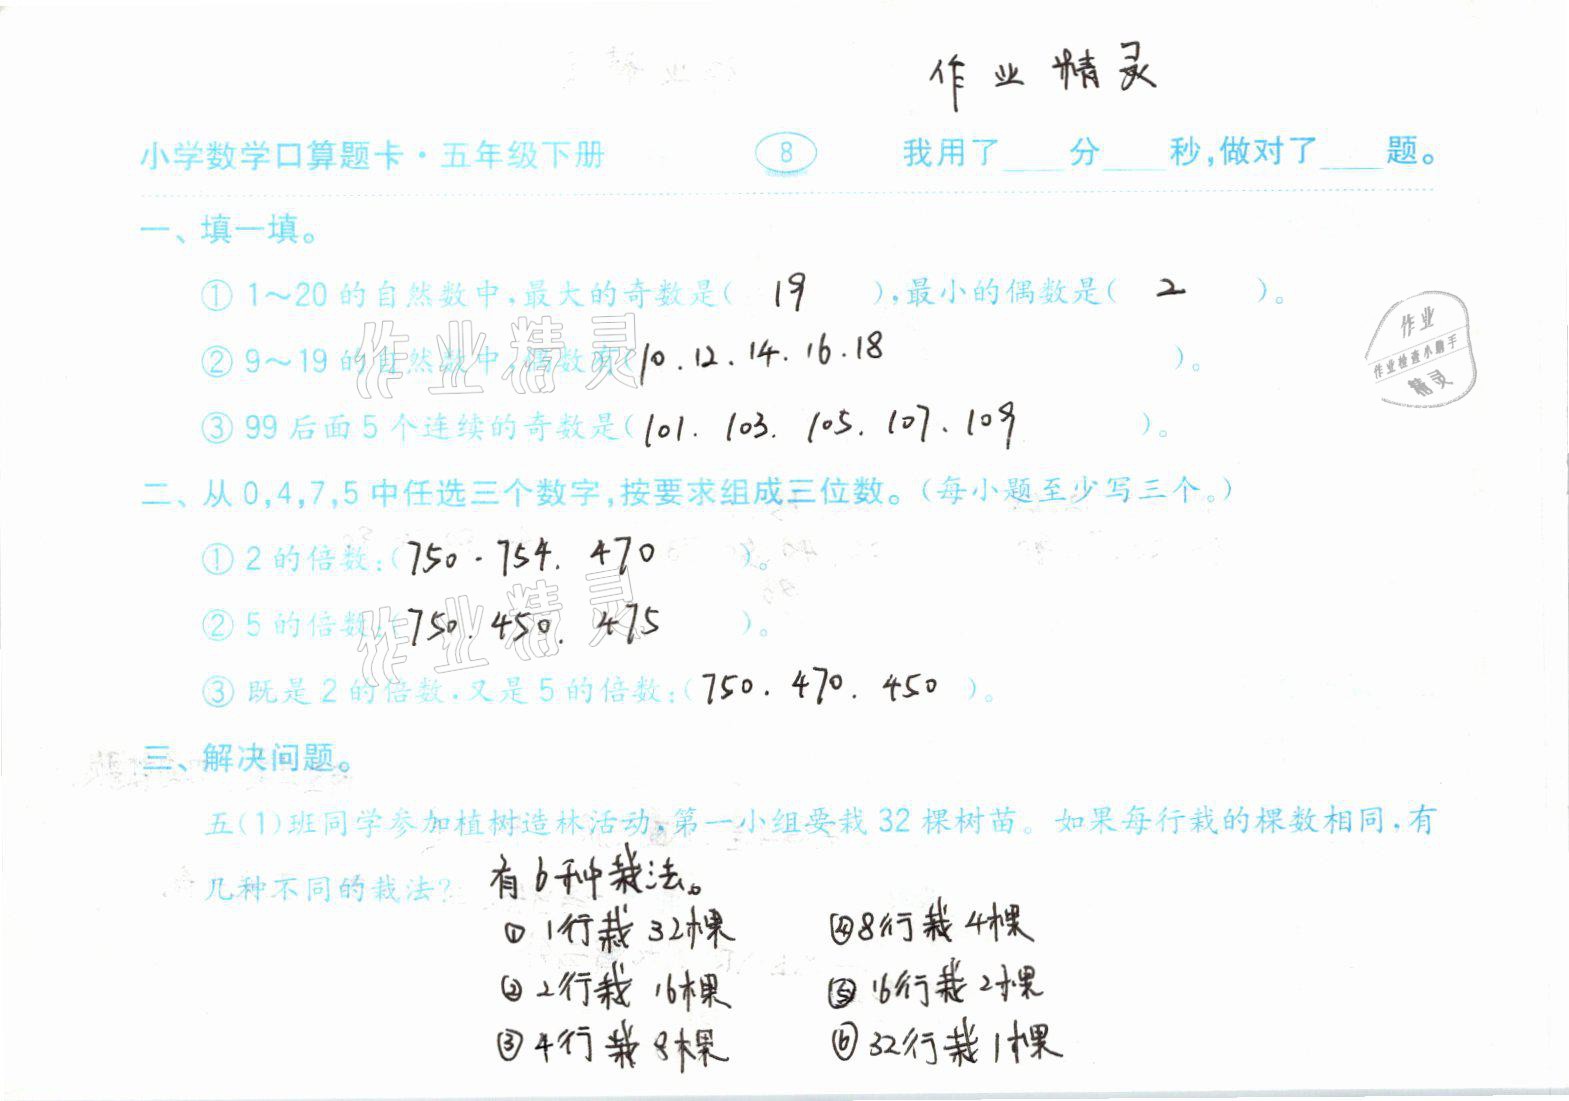 作业精灵
小学数学口算题卡·五年级下册 8 我用了____分____秒,做对了____题。
一、填一填。
① 1~20的自然数中,最大的奇数是( 19 ),最小的偶数是( 2 )。
② 9~19的自然数中,偶数有(10.12.14.16.18 )。
③ 99后面5个连续的奇数是(101.103.105.107.109 )。
作业
作业检查小助手
精灵
作业精灵
二、从0,4,7,5中任选三个数字,按要求组成三位数。(每小题至少写三个。)
① 2的倍数:(750.754.470 )。
② 5的倍数:(750.450.475 )。
作业精灵
③ 既是2的倍数,又是5的倍数:(750.470.450 )。
三、解决问题。
五(1)班同学参加植树造林活动,第一小组要栽32棵树苗。如果每行栽的棵数相同,有
几种不同的栽法? 有6种栽法。
① 1行栽32棵 ④8行栽4棵
② 2行栽16棵 ⑤16行栽2棵
③ 4行栽8棵 ⑥32行栽1棵